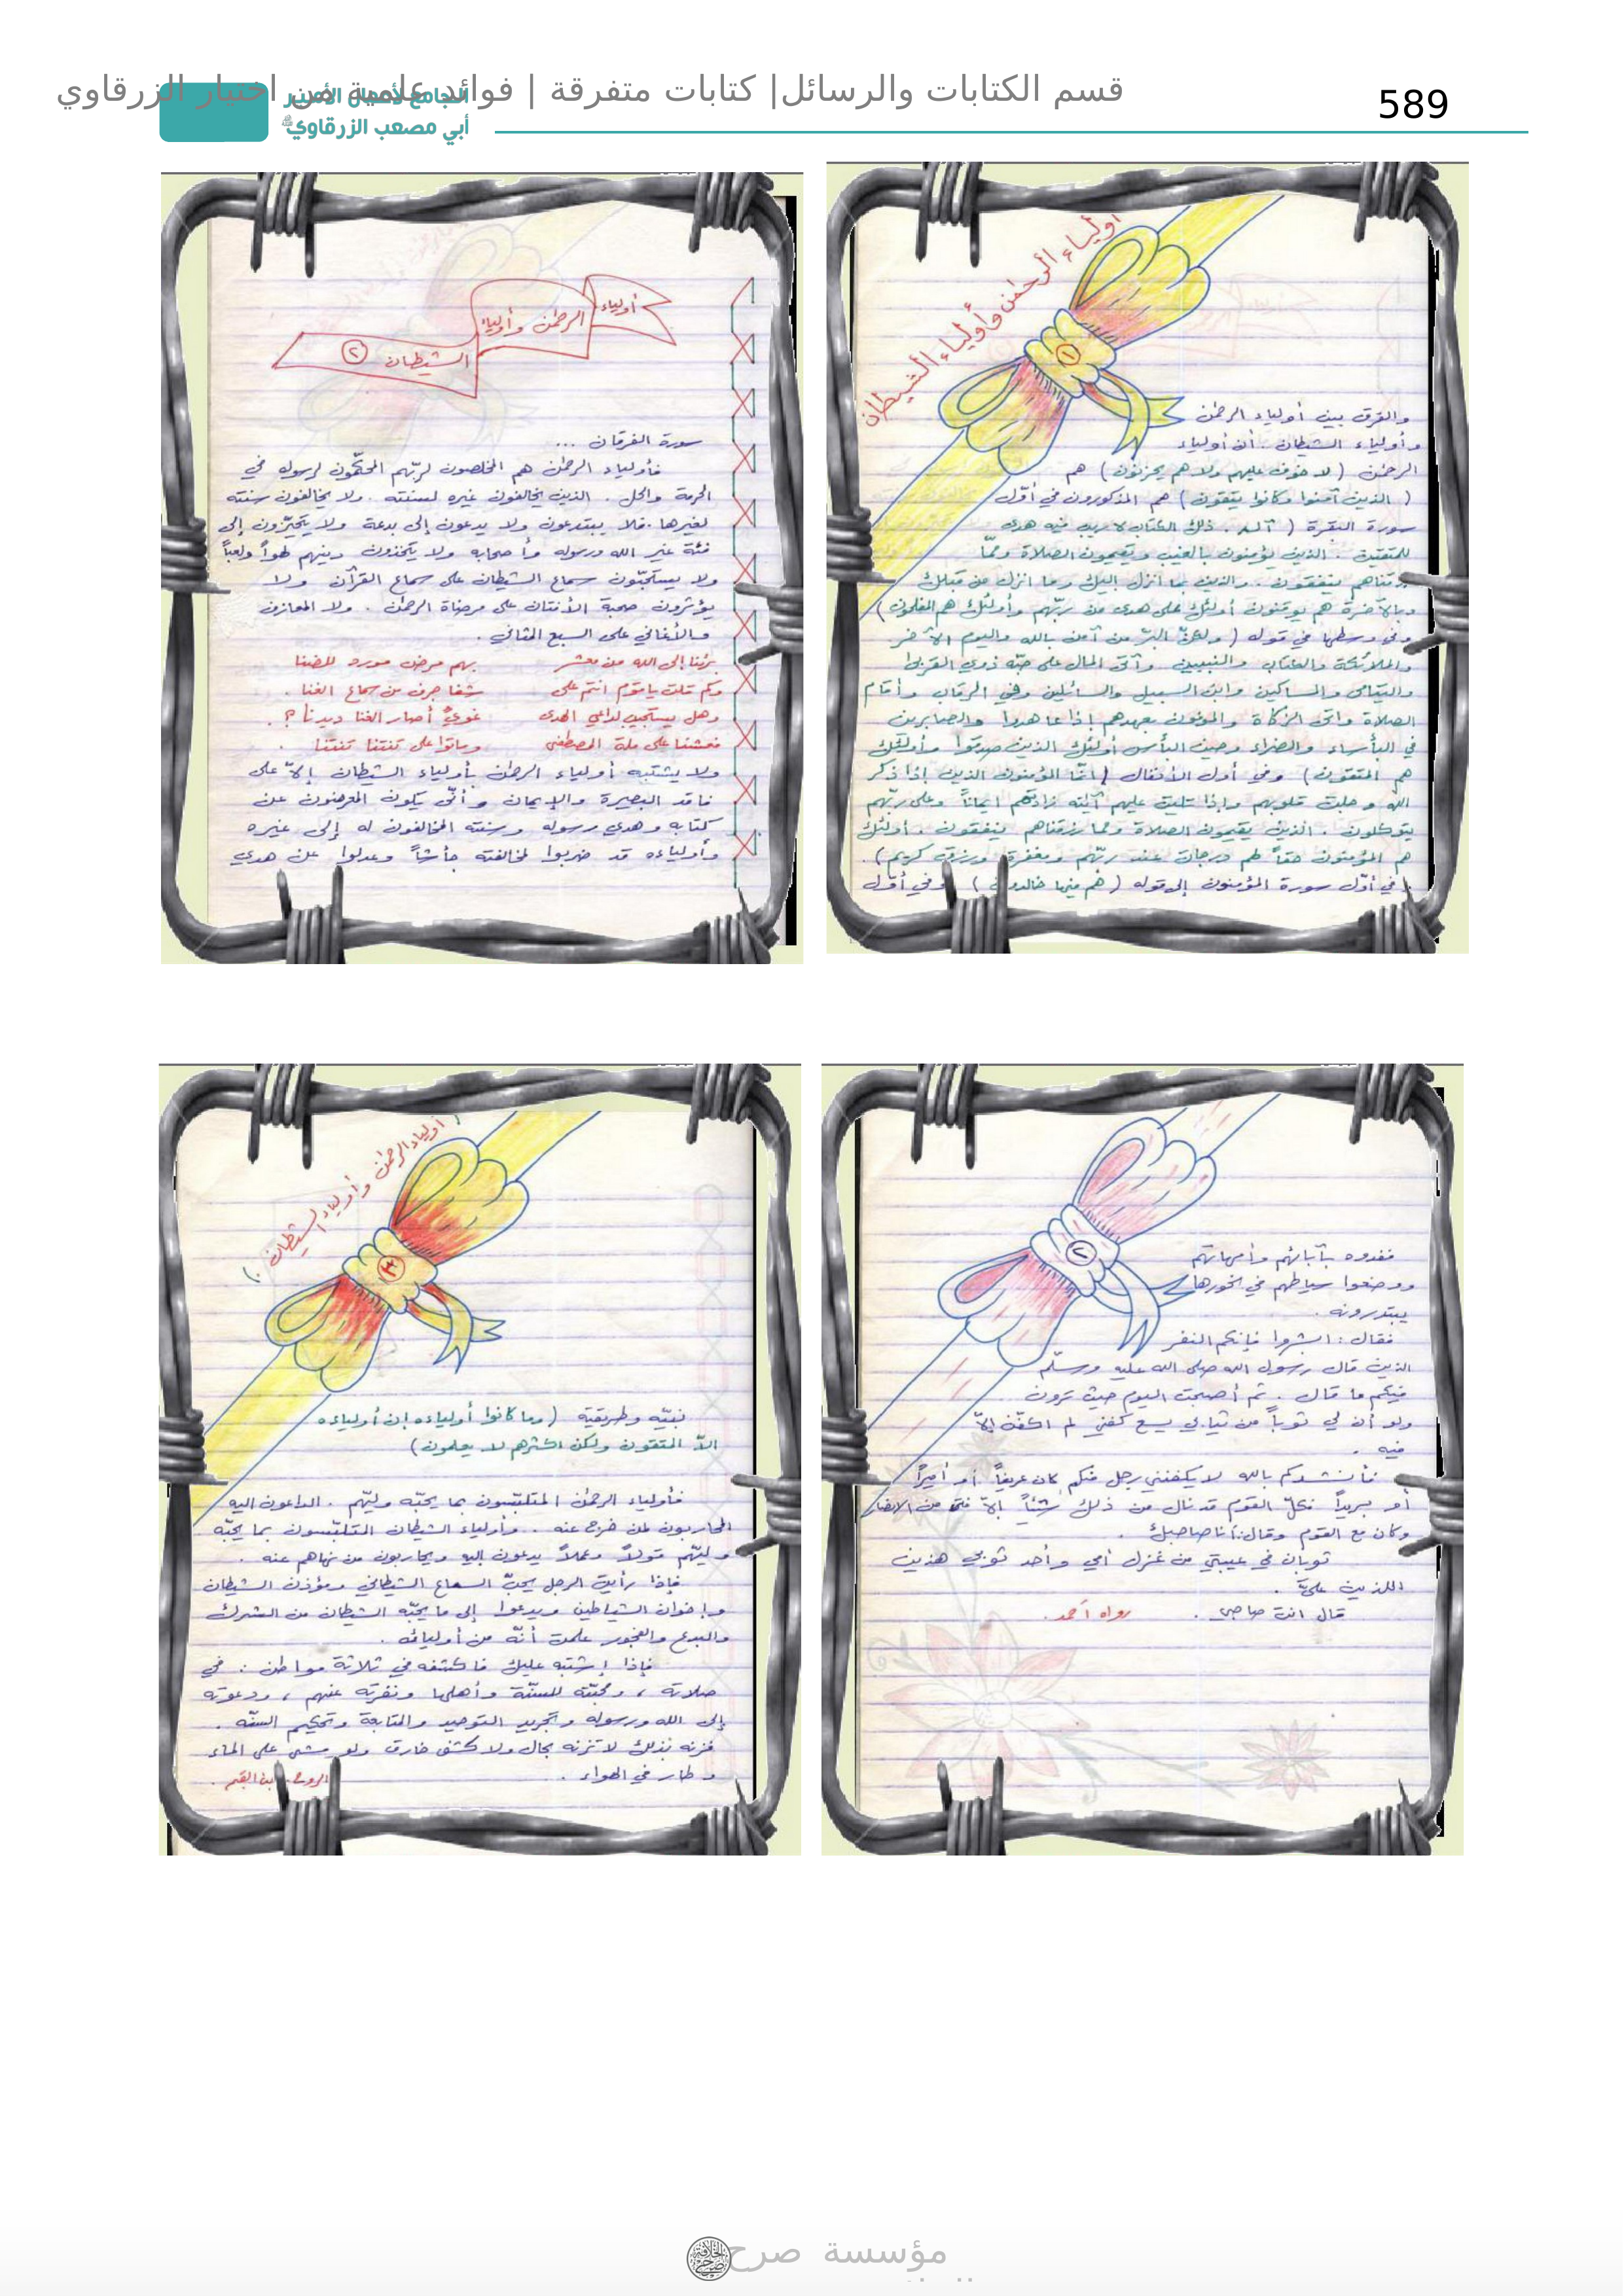 قسم الكتابات والرسائل| كتابات متفرقة | فوائد علمية من اختيار الزرقاوي
589
الجامع لأعمال الأمير
أبي مصعب الزرقاوي
أولياء الرحمٰن وأولياء الشيطان
١
والفرق بين أولياء الرحمٰن
وأولياء الشيطان . أن أولياء
الرحمٰن ( لا خوف عليهم ولا هم يحزنون ) هم
( الذين آمنوا وكانوا يتقون ) هم المذكورون في أوّل
سورة البقرة ( آلم . ذلك الكتاب لا ريب فيه هدى
للمتقين . الذين يؤمنون بالغيب ويقيمون الصلاة وممّا
رزقناهم ينفقون . والذين بما أنزل إليك وما انزل من قبلك
وبالآخرة هم يوقنون أولئك على هدى من ربّهم وأولئك هم المفلحون )
وفي وسطها في قوله ( ولكنّ البرّ من آمن بالله واليوم الآخر
والملائكة والكتاب والنبيين وآتى المال على حبّه ذوي القربى
واليتامى والمساكين وابن السبيل والسائلين وفي الرقاب وأقام
الصلاة وآتى الزكاة والموفون بعهدهم إذا عاهدوا والصابرين
في البأساء والضراء وحين البأس أولئك الذين صدقوا وأولئك
هم المتقون ) وفي أول الأنفال ( إنّما المؤمنون الذين إذا ذكر
الله وجلت قلوبهم وإذا تليت عليهم آيٰته زادتهم ايماناً وعلى ربّهم
يتوكلون . الذين يقيمون الصلاة ومما رزقناهم ينفقون . أولئك
هم المؤمنون حقاً لهم درجات عند ربّهم ومغفرة ورزق كريم ) .
وفي أوّل سورة المؤمنون إلى قوله ( هم فيها خالدون ) وفي أوّل
أولياء الرحمٰن وأولياء الشيطان ٢
سورة الفرقان ...
فأولياء الرحمٰن هم المخلصون لربّهم المحكّمون لرسوله في
الحرمة والحل . الذين يخالفون غيره لسنته . ولا يخالفون سنته
لغيرها . فلا يبتدعون ولا يدعون إلى بدعة ولا يتحيّزون إلى
فئة غير الله ورسوله وأصحابه ولا يتخذون دينهم لهواً ولعباً
ولا يستحبّون سماع الشيطان على سماع القرآن ولا
يؤثرون صحبة الأنتان على مرضاة الرحمٰن . ولا المعازف
والأغاني على السبع المثاني .
برئنا إلى الله من معشر بهم مرض مورد للضنا
وكم قلت يا قوم انتم على شفا جرف من سماع الغنا .
وهل يستجيب لداعي الهدى غويٌّ أصار الغنا ديدنا ؟ .
فعشنا على ملة المصطفى وماتوا على تنتنا تنتنا .
ولا يشتبه أولياء الرحمٰن بأولياء الشيطان إلاّ على
فاقد البصيرة والإيمان وأنّى يكون المعرضون عن
كتابه وهدي رسوله وسنته المخالفون له إلى غيره
وأولياءه قد ضربوا لمخالفته جأشاً وعدلوا عن هدي
٢
ففدوه بآبائهم وأمهاتهم
ووضعوا سياطهم في نحورها
يبتدرونه .
فقال : ابشروا فإنكم النفر
الذين قال رسول الله صلى الله عليه وسلّم
فيكم ما قال . ثم أصبحت اليوم حيث ترون
ولو أن لي ثوباً من ثيابي يسع كفني لم اكفّن إلاّ
فيه .
فأنشدكم بالله لا يكفنني رجل منكم كان عريفاً أو أميراً
أو بريداً فكلّ القوم قد نال من ذلك شيئاً إلاّ فتى من الانصار
وكان مع القوم وقال : أنا صاحبك .
ثوبان في عيبتي من غزل أمي وأحد ثوبي هذين
اللذين عليّ .
قال انت صاحبي . رواه أحمد .
( أولياء الرحمٰن وأولياء الشيطان . )
٣
نبيّه وطريقته ( وما كانوا أولياءه إن أولياءه
الاّ المتقون ولكن اكثرهم لا يعلمون )
فأولياء الرحمٰن المتلبّسون بما يحبّه وليّهم . الداعون إليه
المحاربون لمن خرج عنه . وأولياء الشيطان المتلبّسون بما يحبّه
وليّهم قولاً وعملاً يدعون إليه ويحاربون من نهاهم عنه .
فإذا رأيت الرجل يحبّ السماع الشيطاني ومؤذن الشيطان
وإخوان الشياطين ويدعوا إلى ما يحبّه الشيطان من الشرك
والبدع والفجور علمت أنّه من أوليائه .
فإذا إشتبه عليك فاكشفه في ثلاثة مواطن : في
صلاته ، ومحبّته للسنّة وأهلها ونفرته عنهم ، ودعوته
إلى الله ورسوله وتجريد التوحيد والمتابعة وتحكيم السنّة .
فزنه بذلك لا تزنه بحال ولا كشف خارق ولو مشى على الماء
وطار في الهواء . الروح . ابن القيم .
مؤسسة صرح